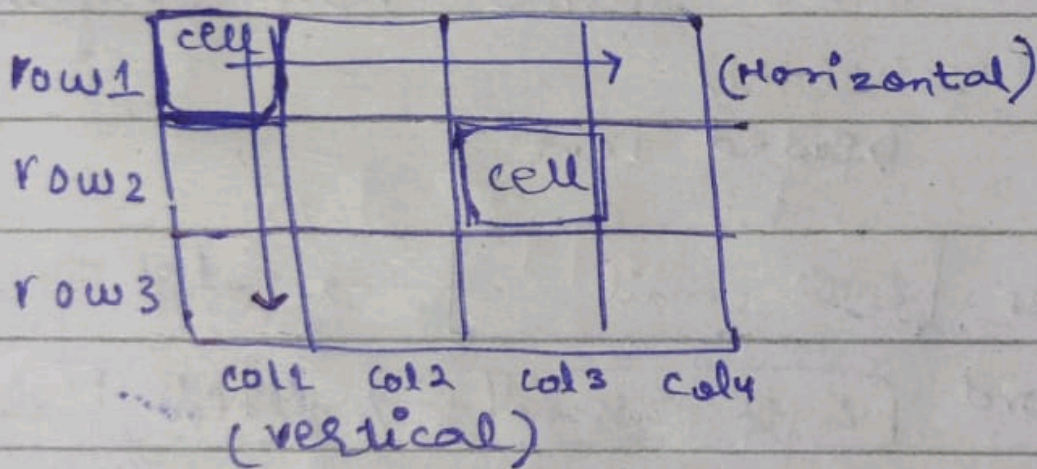 cell
row1 (Horizontal)
row2 cell
row3
col1 col2 col3 col4
(vertical)